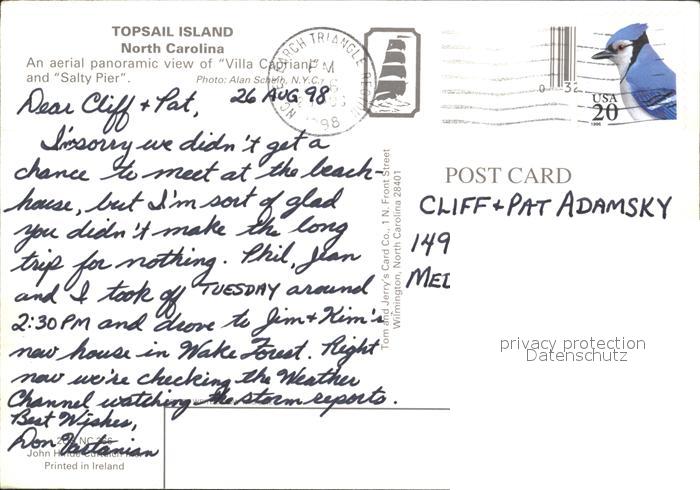 TOPSAIL ISLAND
North Carolina
An aerial panoramic view of "Villa Capriani"
and "Salty Pier".
Photo: Alan Schein, N.Y.C.
26 AUG 98
Dear Cliff + Pat,
I'm sorry we didn't get a
chance to meet at the beach-
house, but I'm sort of glad
you didn't make the long
trip for nothing. Phil, Jean
and I took off TUESDAY around
2:30 PM and drove to Jim + Kim's
new house in Wake Forest. Right
now we're checking the Weather
Channel watching the storm reports.
Best Wishes,
Don Vartanian
John
Printed in Ireland
Tom and Jerry's Card Co., 1 N. Front Street
Wilmington, North Carolina 28401
TRIANGLE
PM
NC
98
0 32
USA
20
1996
POST CARD
CLIFF + PAT ADAMSKY
149
MED
privacy protection
Datenschutz